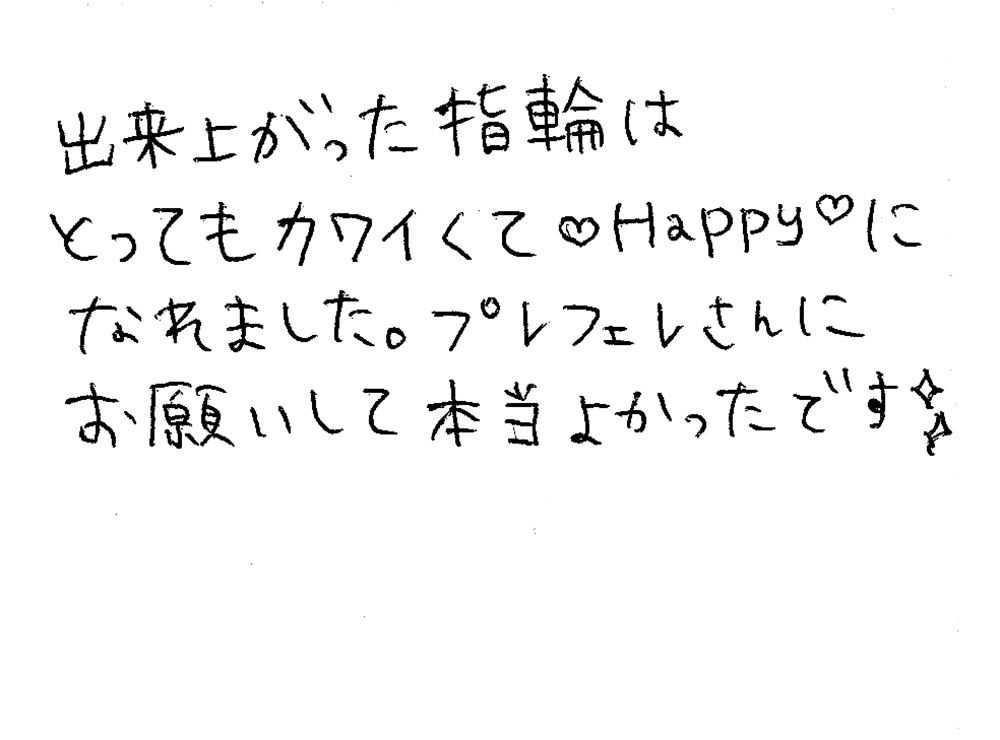 出来上がった指輪は
とってもカワイくて♡Happy♡に
なれました。プレフェレさんに
お願いして本当よかったです✨